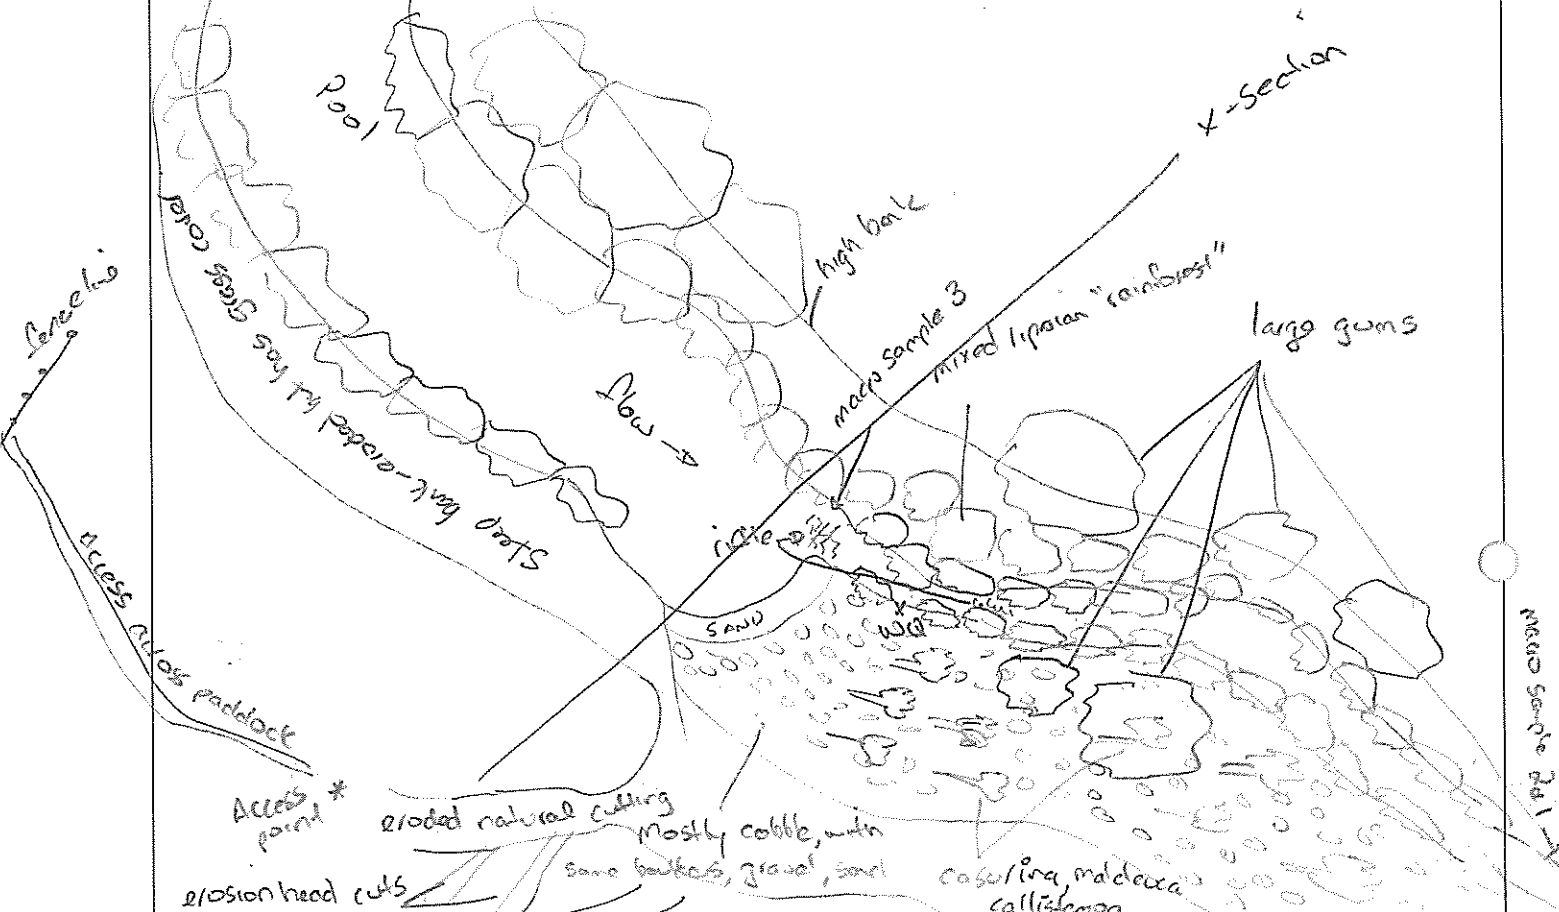 X-Section
Pool
high bank
fenceline
Steep bank-eroded but has grass cover
macro sample 3
mixed riparian "rainforest"
large gums
flow →
riffle →
SAND
WQ
Access across paddock
macro sample 2d1 →
Access
point *
eroded natural cutting
Mostly cobble, with
some boulders, gravel, sand
erosion head cuts
casurina, maleleuca
callistemon